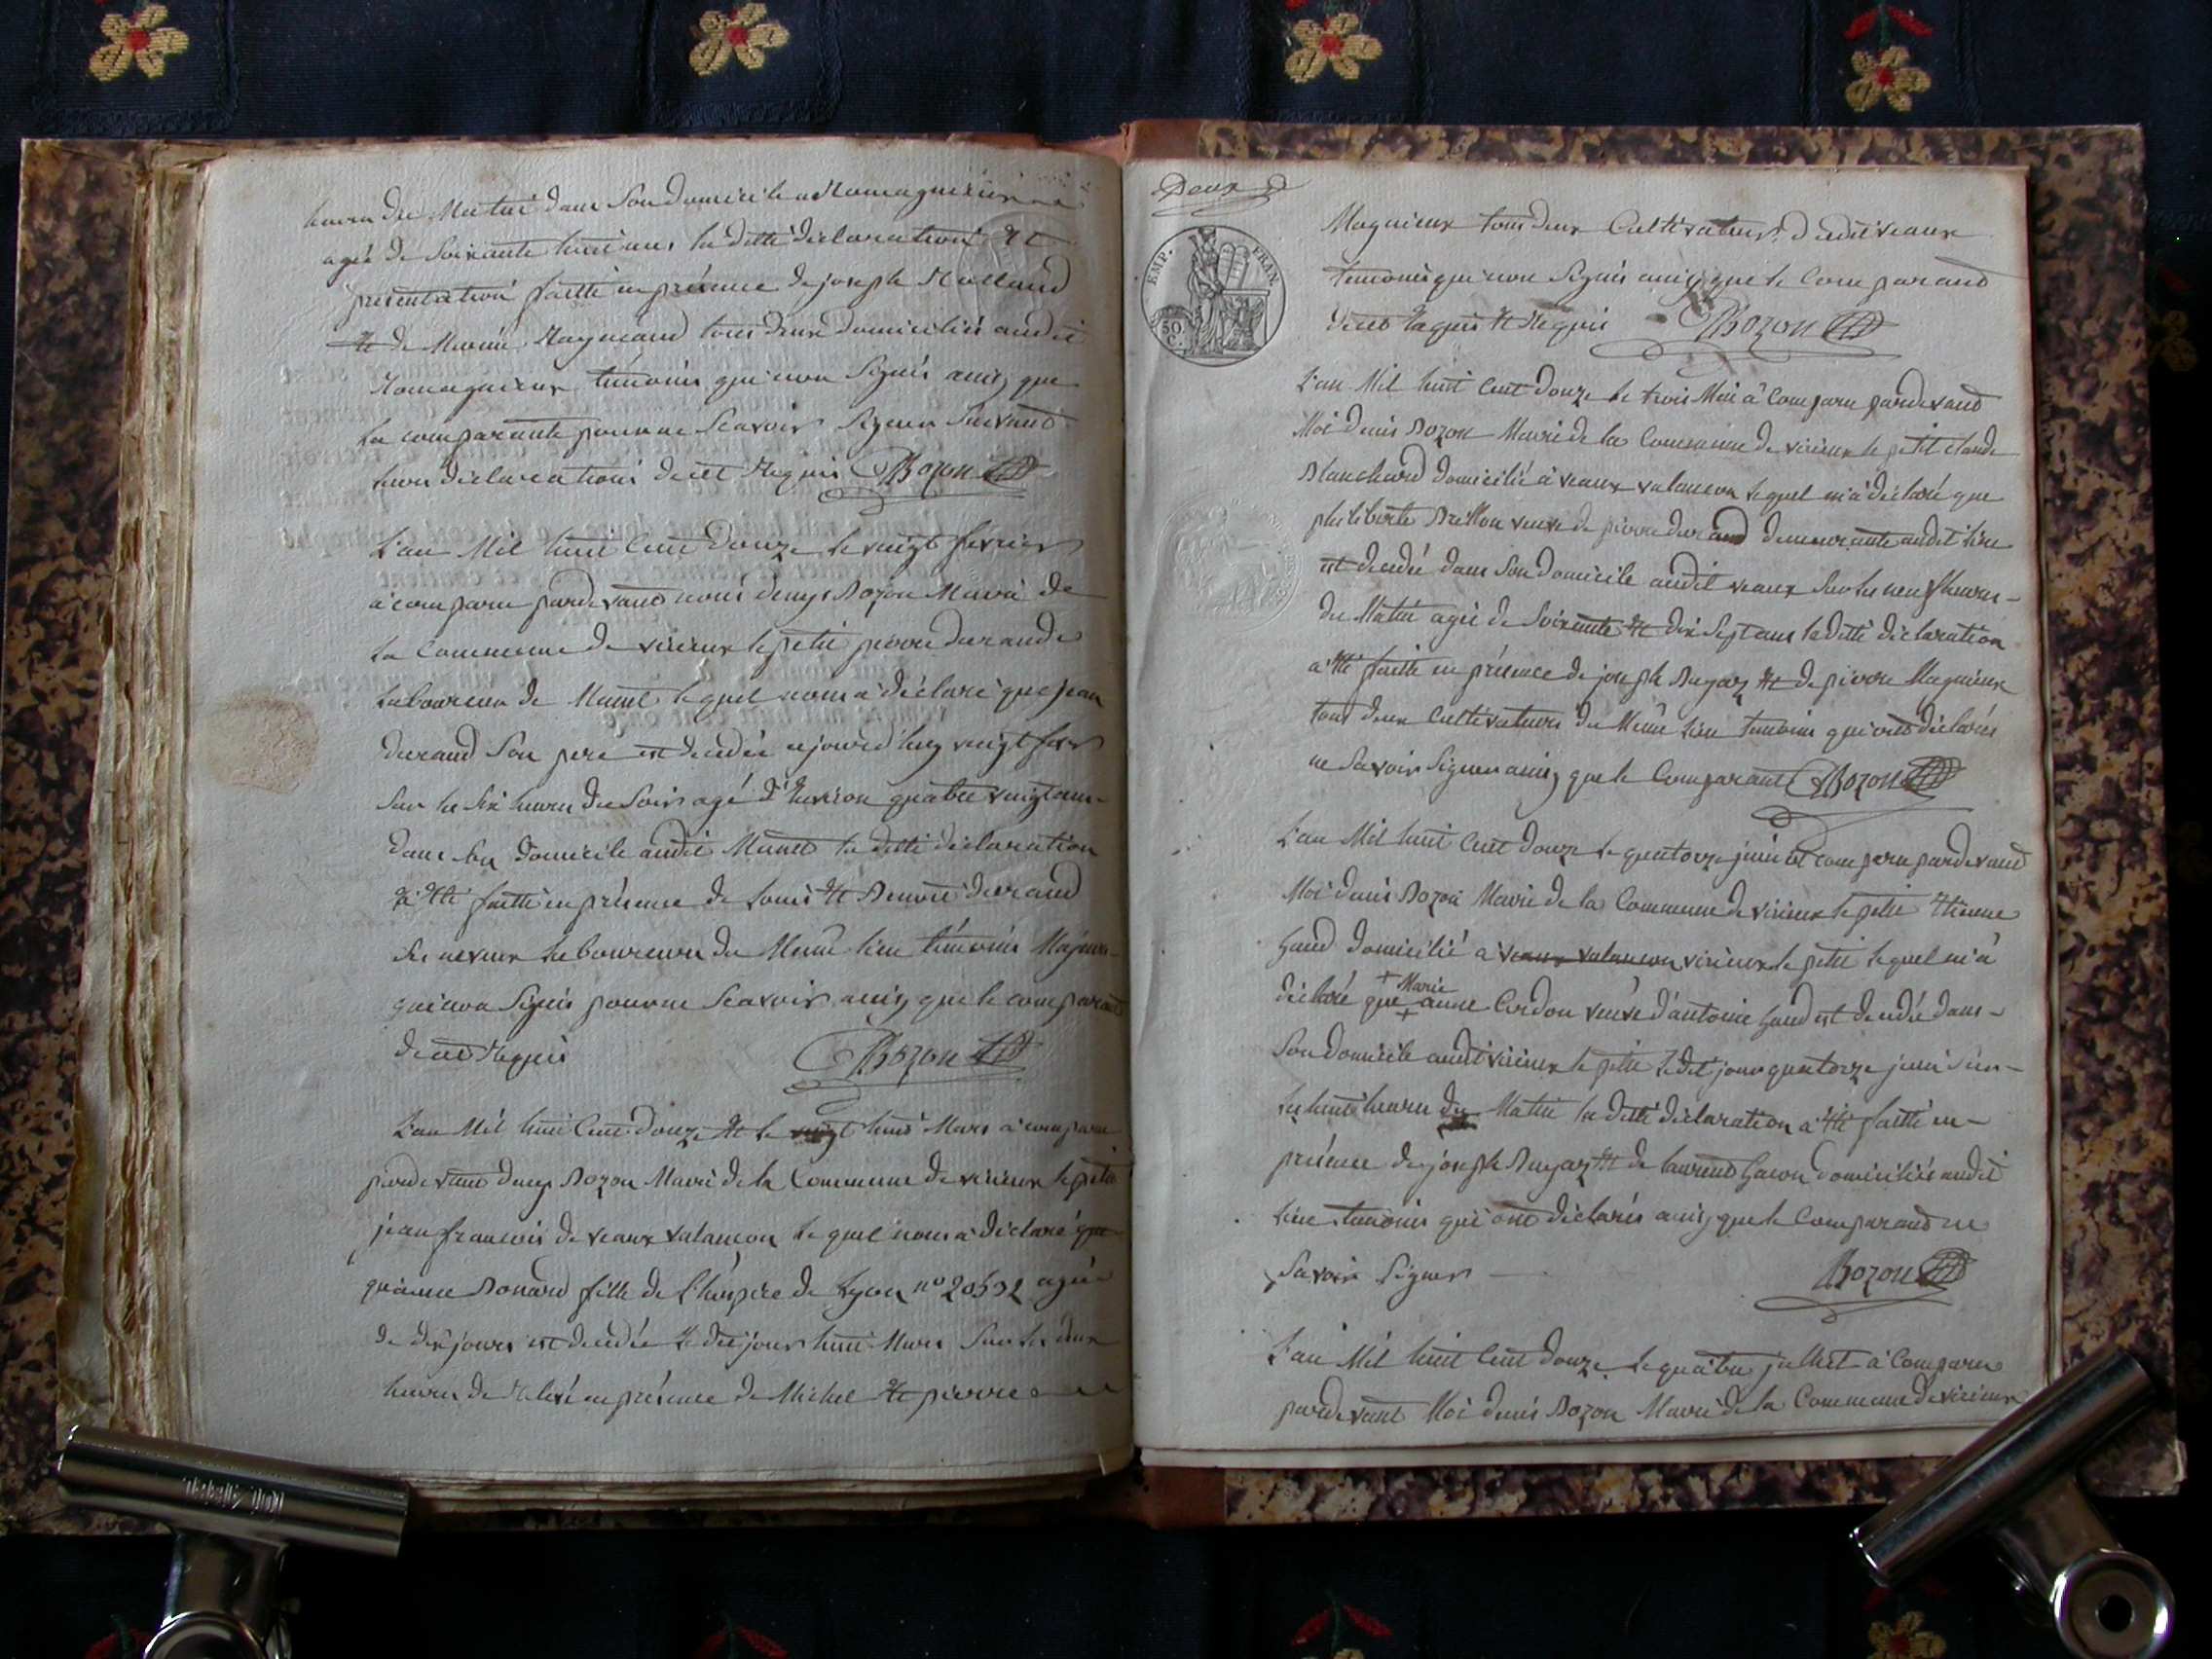 heures du Matin dans Son domicile a Romagnieu
agée de Soixante huit ans la ditte déclaration et
présentation faitte en présence de joseph Rulland
et de Marin Raymand tous deux domiciliés audit
Romagnieux témoins qui non Signés ainsy que
la comparante pour ne Scavoir Signer Suivant
leurs déclarations de ce Requis Bozon
L'an Mil huit Cent Douze le vingt fevrier
a comparu pardevant nous denys Bozon Maire de
la Commune de virieux le petit pierre durand
Laboureur de Munet lequel nous a déclaré que jean
durand Son pere est decedé cejourd'huy vingt fevr
Sur les Six heures du Soir agé d'Environ quatre vingt ans
dans Son domicile audit Munet la ditte déclaration
a été faitte en présence de Louis et Benoit durand
Ses neveux laboureurs du Même lieu témoins Majeurs
qui non Signés pour ne Scavoir ainsy que le comparant
de ce Requis Bozon
L'an Mil huit Cent Douze et le vingt huit Mars a comparu
pardevant denys Bozon Maire de la Commune de virieux le petit
jean francois de veaux valancon le quel nous a déclaré que
qu'anne Bonard fille de l'hospice de Lyon n° 20532 agée
de dix jours est decedée le dit jour huit Mars Sur les deux
heures de Relevé en présence de Michel et pierre
Deux
EMP. FRAN.
50 C.
Magnieux tous deux Cultivateurs dudit veaux
temoins qui non Signés ainsy que le Comparand
de ce Requis et Requis Bozon
L'an Mil huit Cent Douze le trois Mai a Comparu pardevand
Moi denis Bozon Maire de la Commune de virieux le petit claude
Blanchard domicilié à veaux valancon lequel m'a déclaré que
philiberte Brillon veuve de pierre durand demeurante audit lieu
est decedée dans Son domicile audit veaux Sur les neuf heures
du Matin agée de Soixante et dix Sept ans la ditte déclaration
a été faitte en présence de joseph Dugaz et de pierre Magnieux
tous deux Cultivateurs du Même lieu temoins qui ont déclarés
ne Savoir Signer ainsy que le Comparant Bozon
L'an Mil huit Cent Douze le quatorze juin est comparu pardevand
Moi denis Bozon Maire de la Commune de virieux le petit Etienne
hand domicilié a veaux valancon virieux le petit lequel m'a
déclaré que + Marie + anne Cordon veuve d'antoine hand est decedée dans
Son domicile audit virieux le petit le dit jour quatorze juin Sur
les huit heures du Matin la ditte déclaration a été faitte en
présence de joseph Dugaz et de laurend hacon domiciliés audit
lieu temoins qui ont déclarés ainsy que le Comparand ne
Savoir Signer Bozon
L'an Mil huit Cent Douze le quatre juillet a Comparu
pardevant Moi denis Bozon Maire de la Commune de virieux